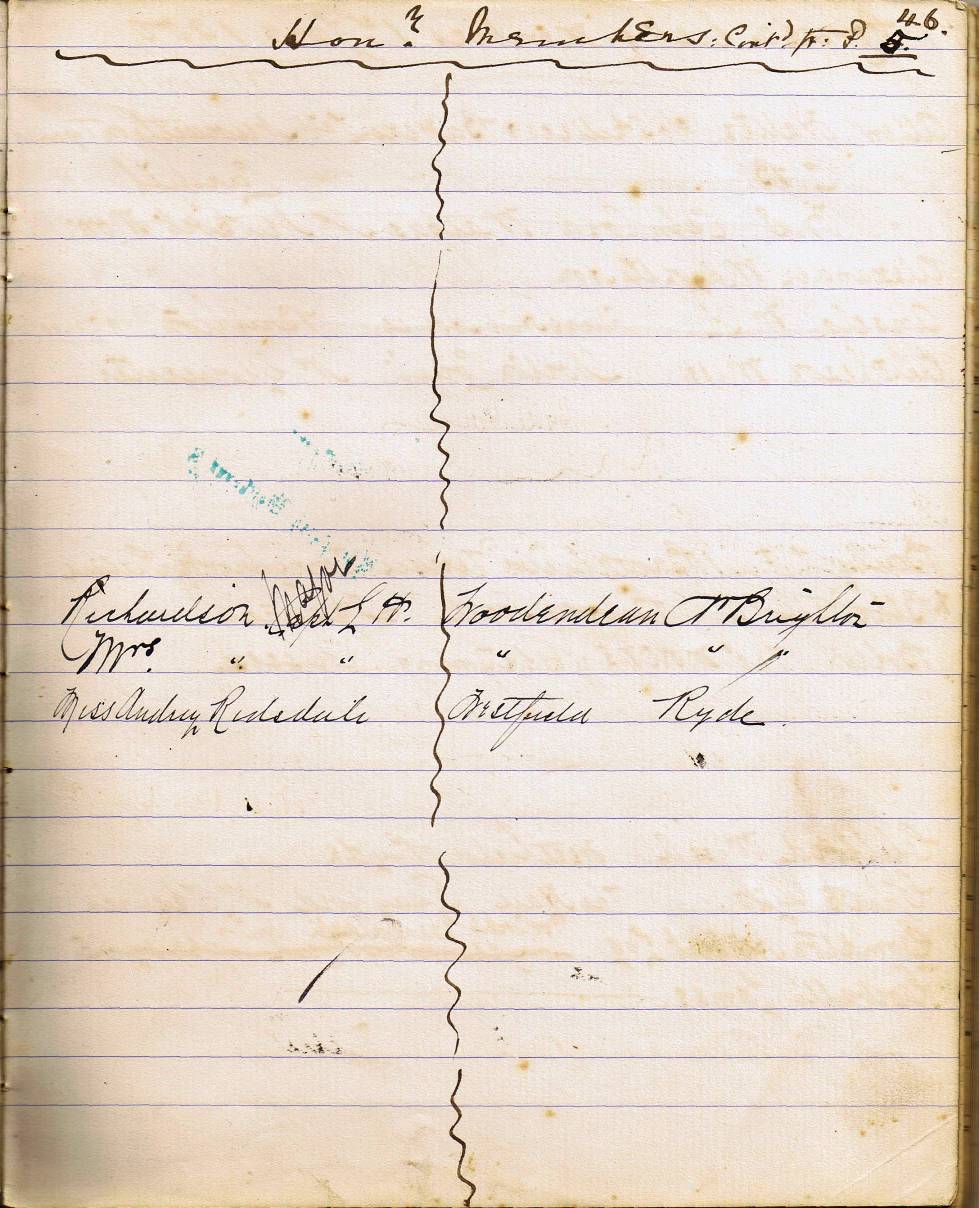 46.
Hon.y Members. Cont.d fr. P. 5.
Richardson Major L H. Woodendean Nr Brighton
Mrs. " " " " "
Miss Audrey Redsdale Westfield Ryde.